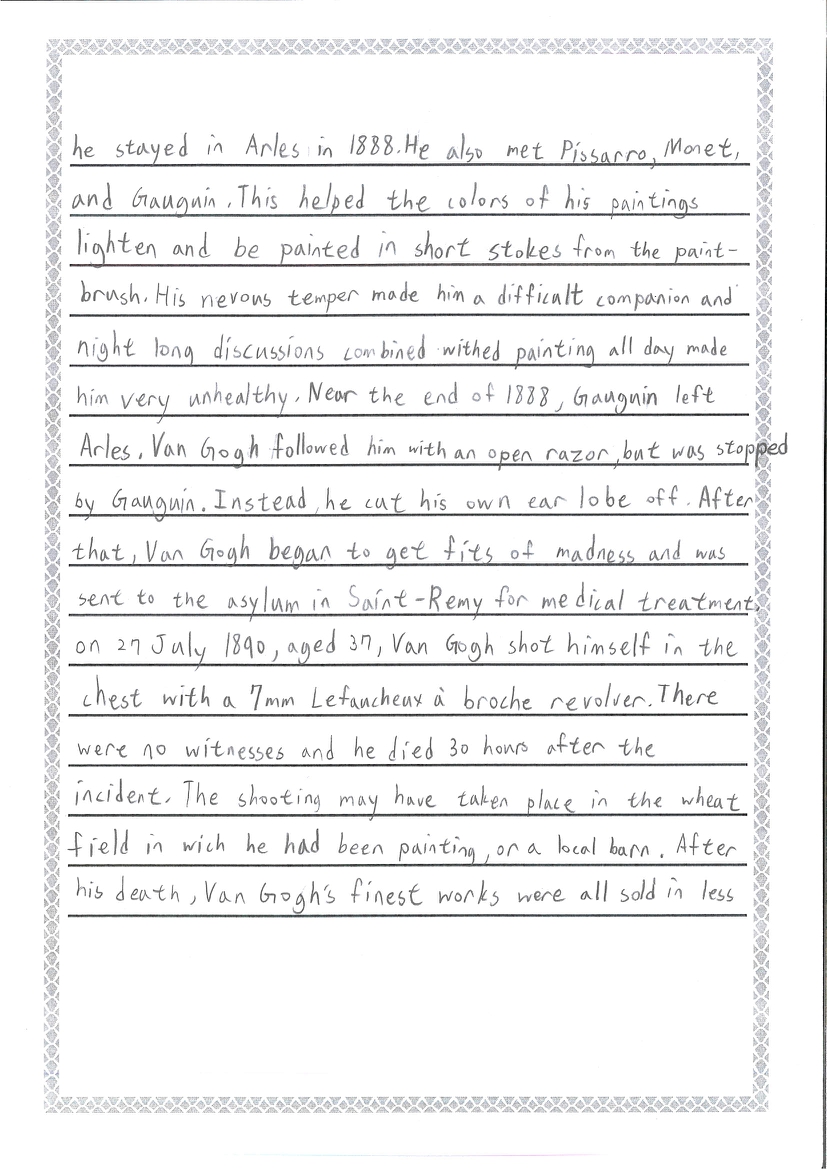 he stayed in Arles in 1888. He also met Pissarro, Monet,
and Gauguin. This helped the colors of his paintings
lighten and be painted in short stokes from the paint-
brush. His nevous temper made him a difficult companion and
night long discussions combined withed painting all day made
him very unhealthy. Near the end of 1888, Gauguin left
Arles. Van Gogh followed him with an open razor, but was stopped
by Gauguin. Instead, he cut his own ear lobe off. After
that, Van Gogh began to get fits of madness and was
sent to the asylum in Saint-Remy for medical treatment.
on 27 July 1890, aged 37, Van Gogh shot himself in the
chest with a 7mm Lefaucheux à broche revolver. There
were no witnesses and he died 30 hours after the
incident. The shooting may have taken place in the wheat
field in wich he had been painting, or a local barn. After
his death, Van Gogh's finest works were all sold in less